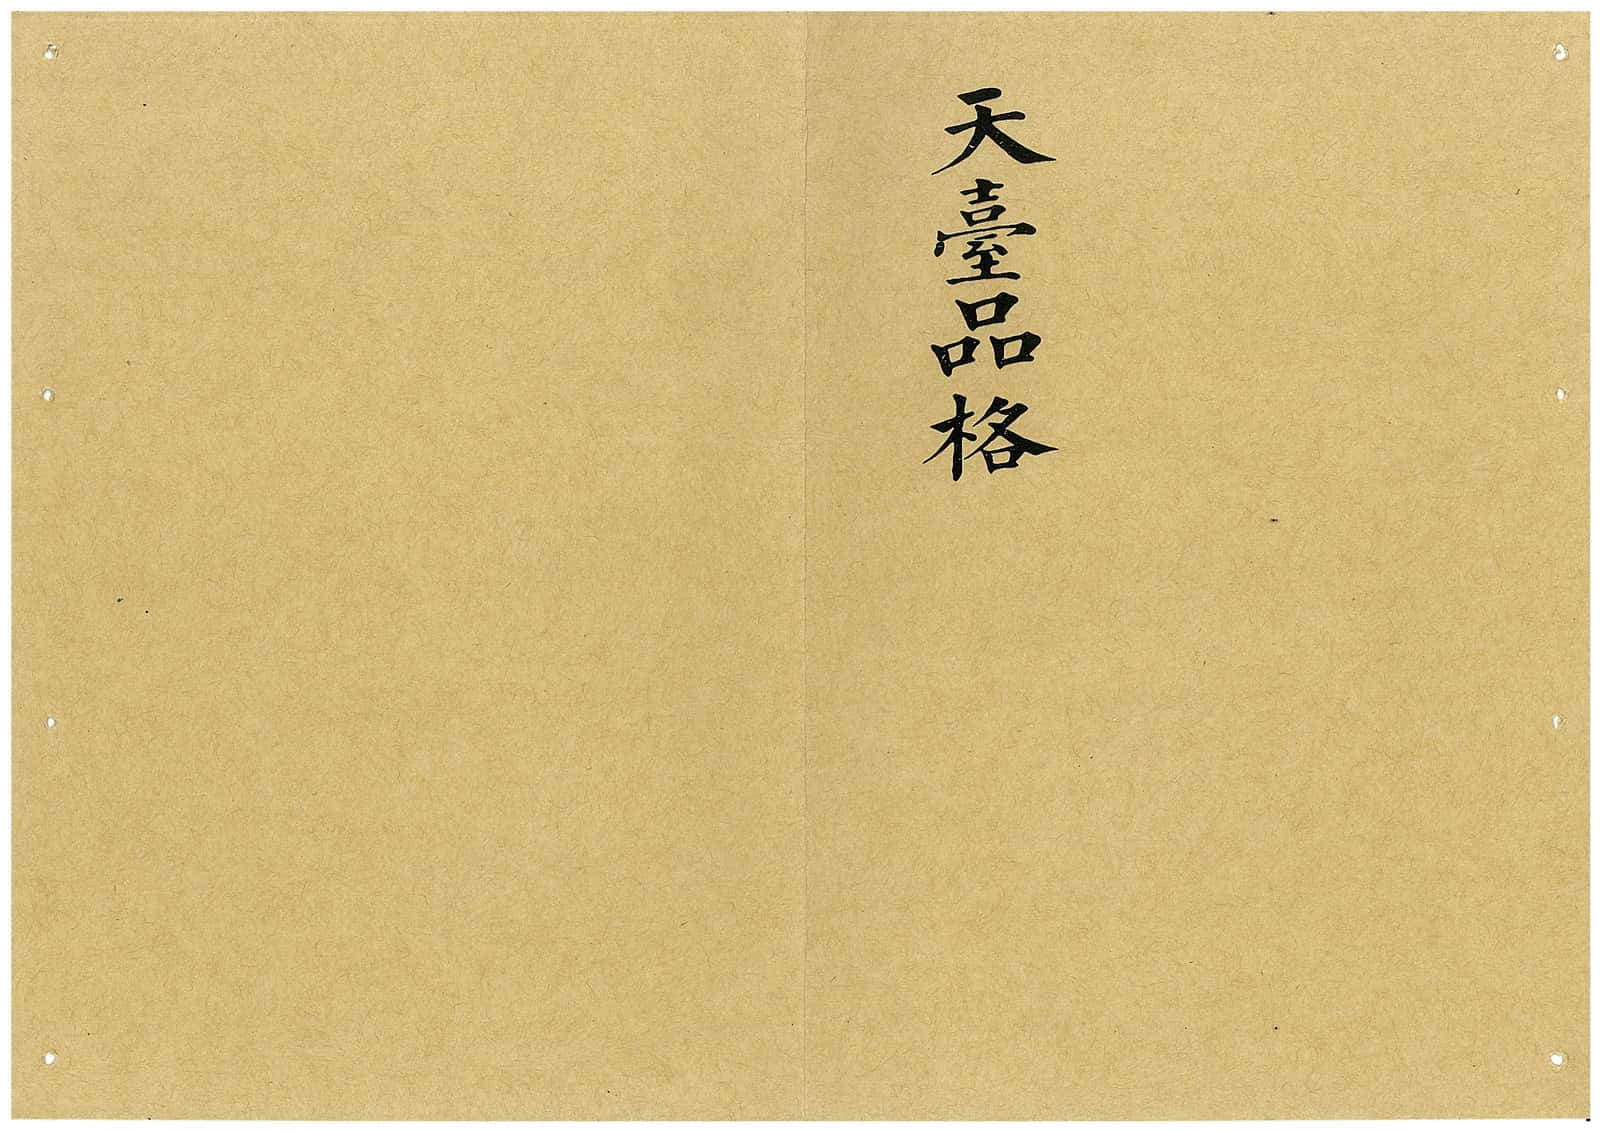 天臺品格